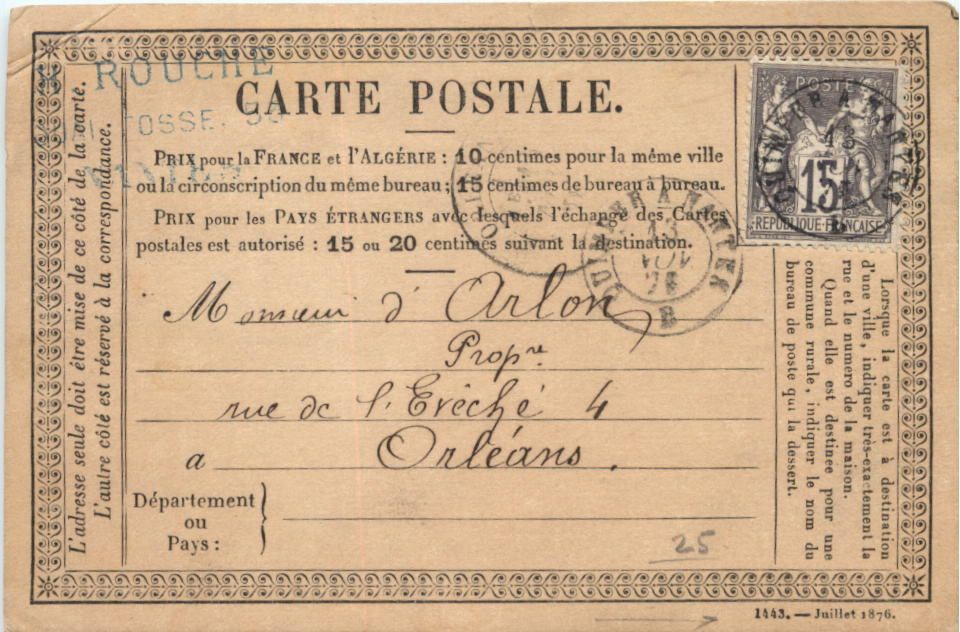 ROUCHÉ
FOSSE.
CARTE POSTALE.
PRIX pour la FRANCE et l'ALGÉRIE : 10 centimes pour la même ville
ou la circonscription du même bureau ; 15 centimes de bureau à bureau.
PRIX pour les PAYS ÉTRANGERS avec lesquels l'échange des Cartes
postales est autorisé : 15 ou 20 centimes suivant la destination.
Monsieur d'Arlon
Propre
rue de l'Evêché 4
a Orléans.
Département
ou
Pays :
25
L'adresse seule doit être mise de ce côté de la carte.
L'autre côté est réservé à la correspondance.
POSTE
15
REPUBLIQUE FRANÇAISE
QUIMPER A NANTES
13
AOU
B
Lorsque la carte est à destination
d'une ville, indiquer très-exactement la
rue et le numero de la maison.
Quand elle est destinée pour une
commune rurale, indiquer le nom du
bureau de poste qui la dessert.
1443. — Juillet 1876.